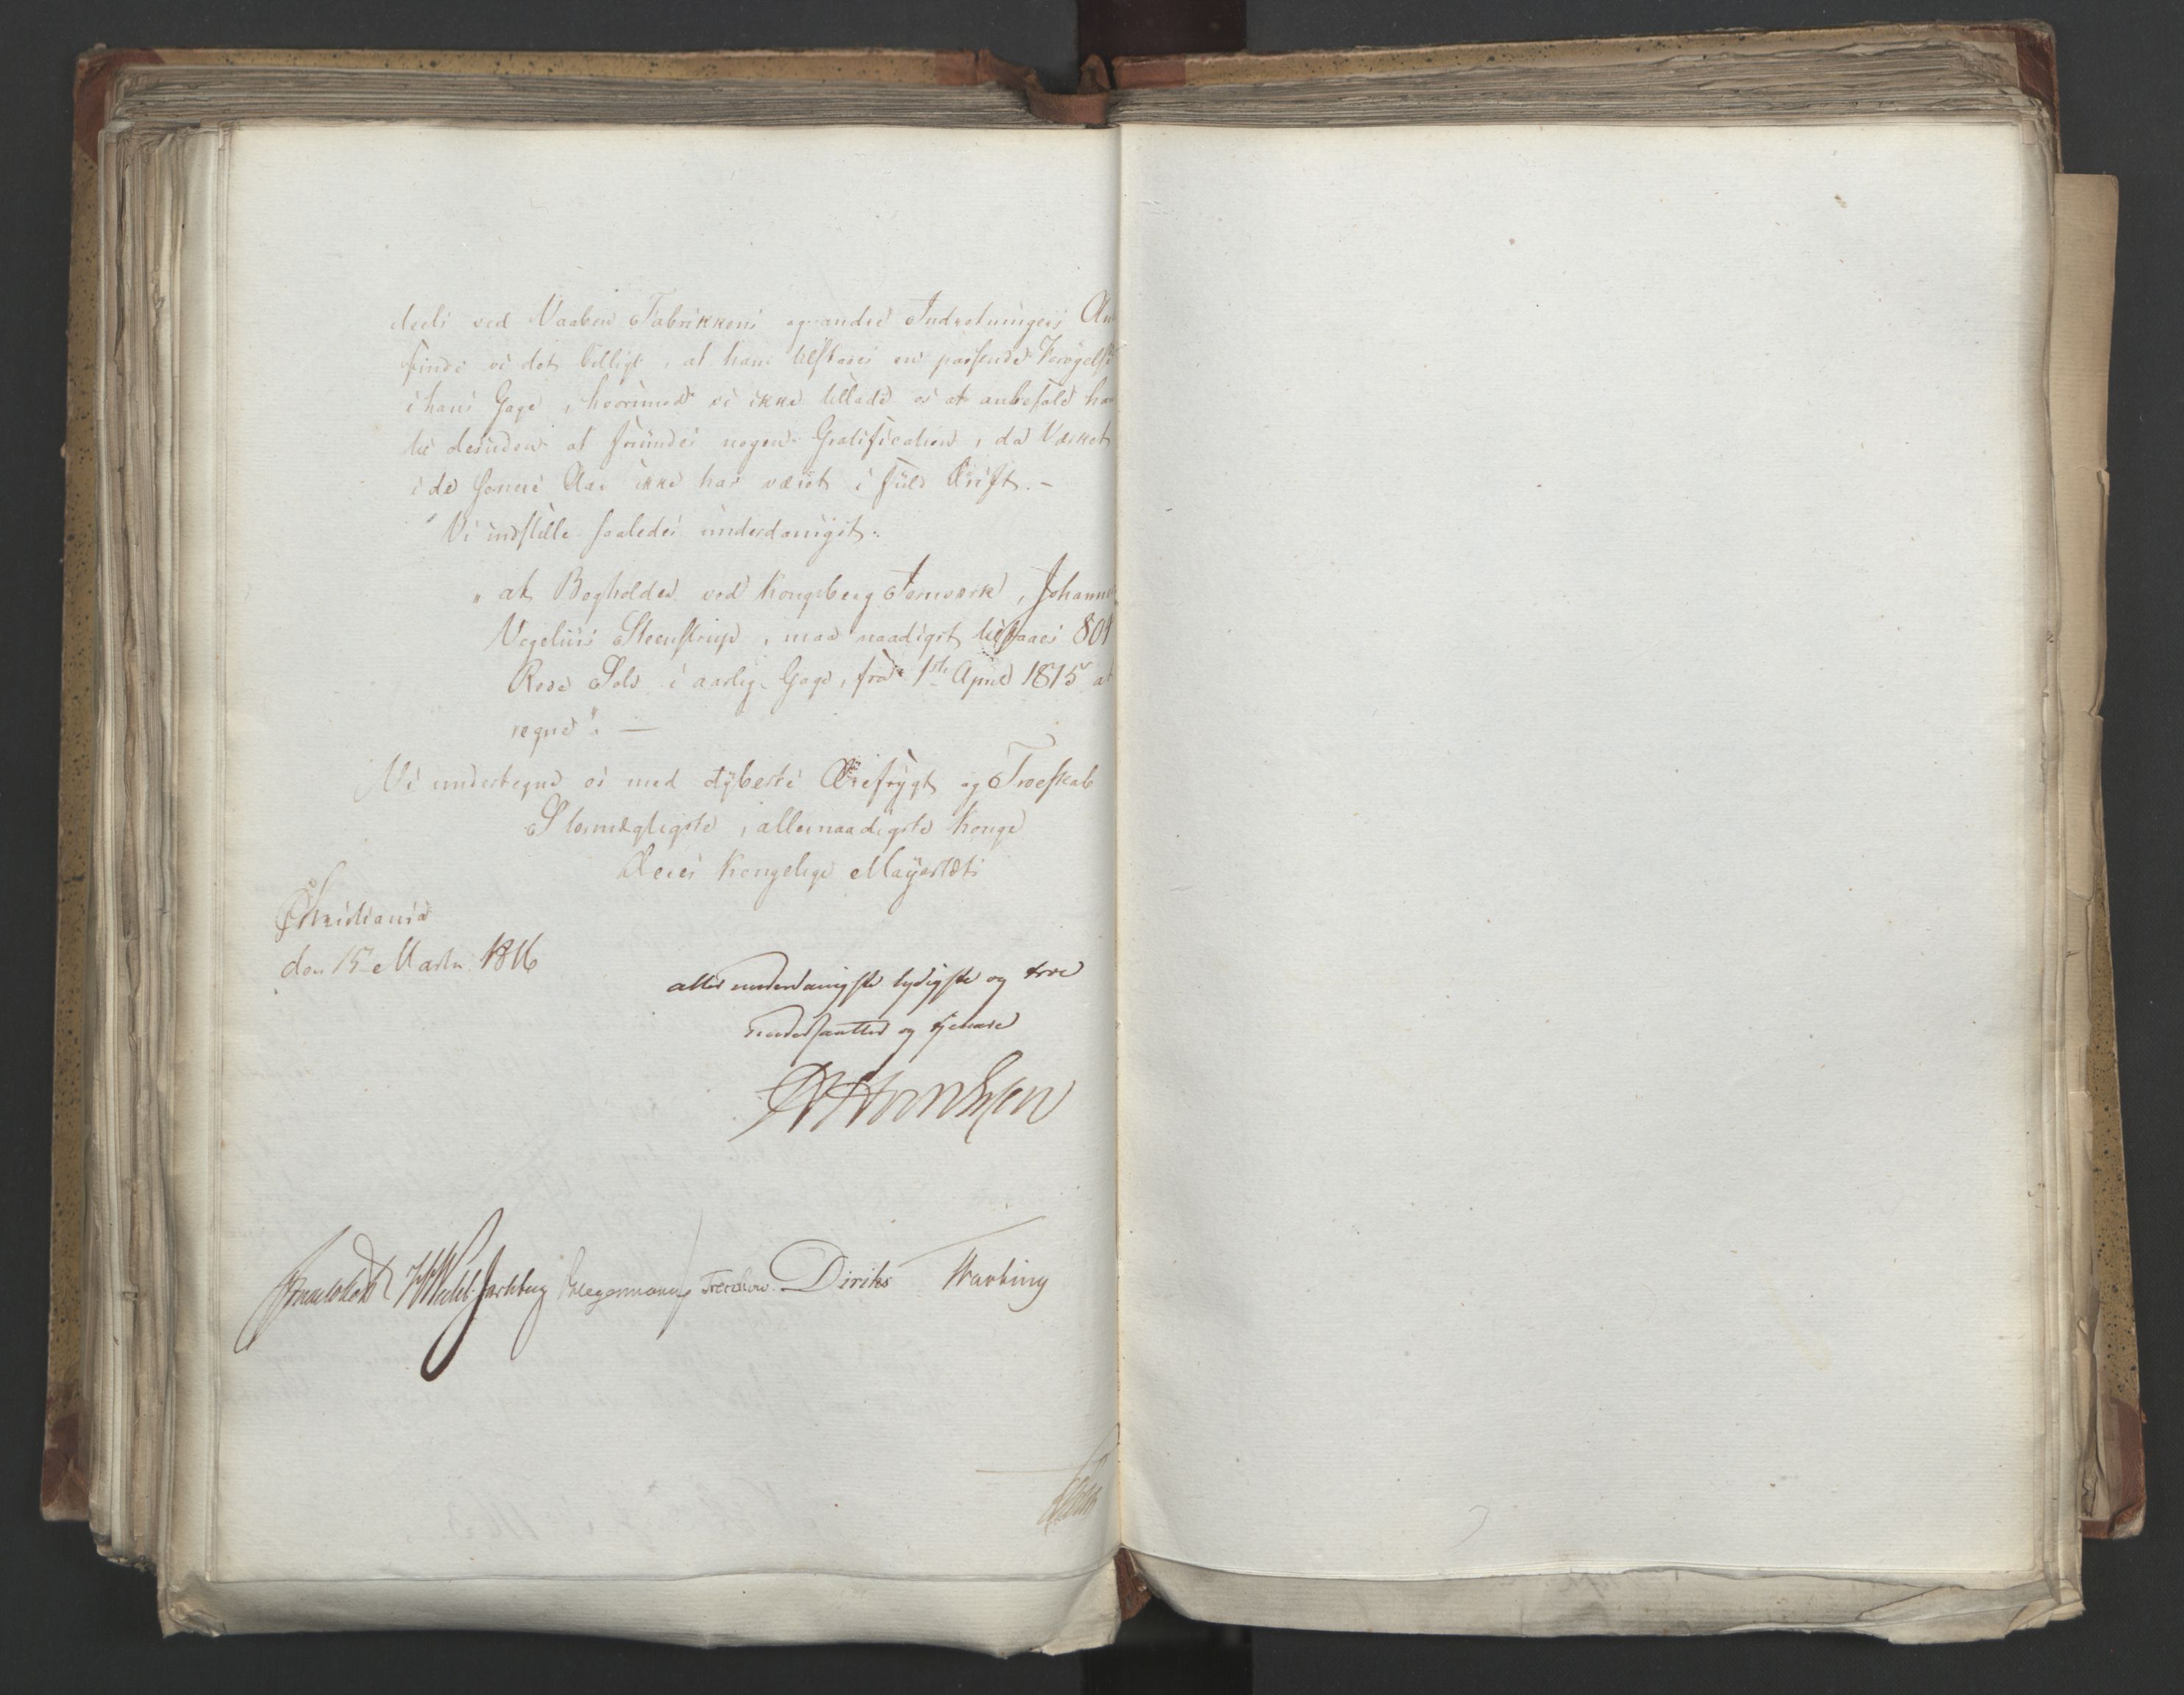 deels ved Vaaben Fabrikkens og andre Indretningers An
finde vi det billigt, at ham tilstaaes en passende Forøgelse
i hans Gage, hvorimod vi ikke tillade os at anbefale ham
til desuden at forundes nogen Gratification, da Værket
i de senere Aar ikke har været i fuld Drift. —
Vi indstille saaledes underdanigst:
„at Bogholder ved Kongsberg Jernværk, Johannes
Vogelius Steenstrup, maa naadigst tilstaaes 800
Rbdr Sølv i aarlig Gage, fra 1ste April 1815 at
regne". —
Vi undertegne os med dybeste Ærefrygt og Troeskab
Stormægtigste, allernaadigste Konge
Deres Kongelige Mayestæts
Christiania
den 15 Marts 1816
allerunderdanigste lydigste og troe
undersaatter og tjenere
Thomsen
Wedel Jarlsberg Hegermann Treschow Diriks